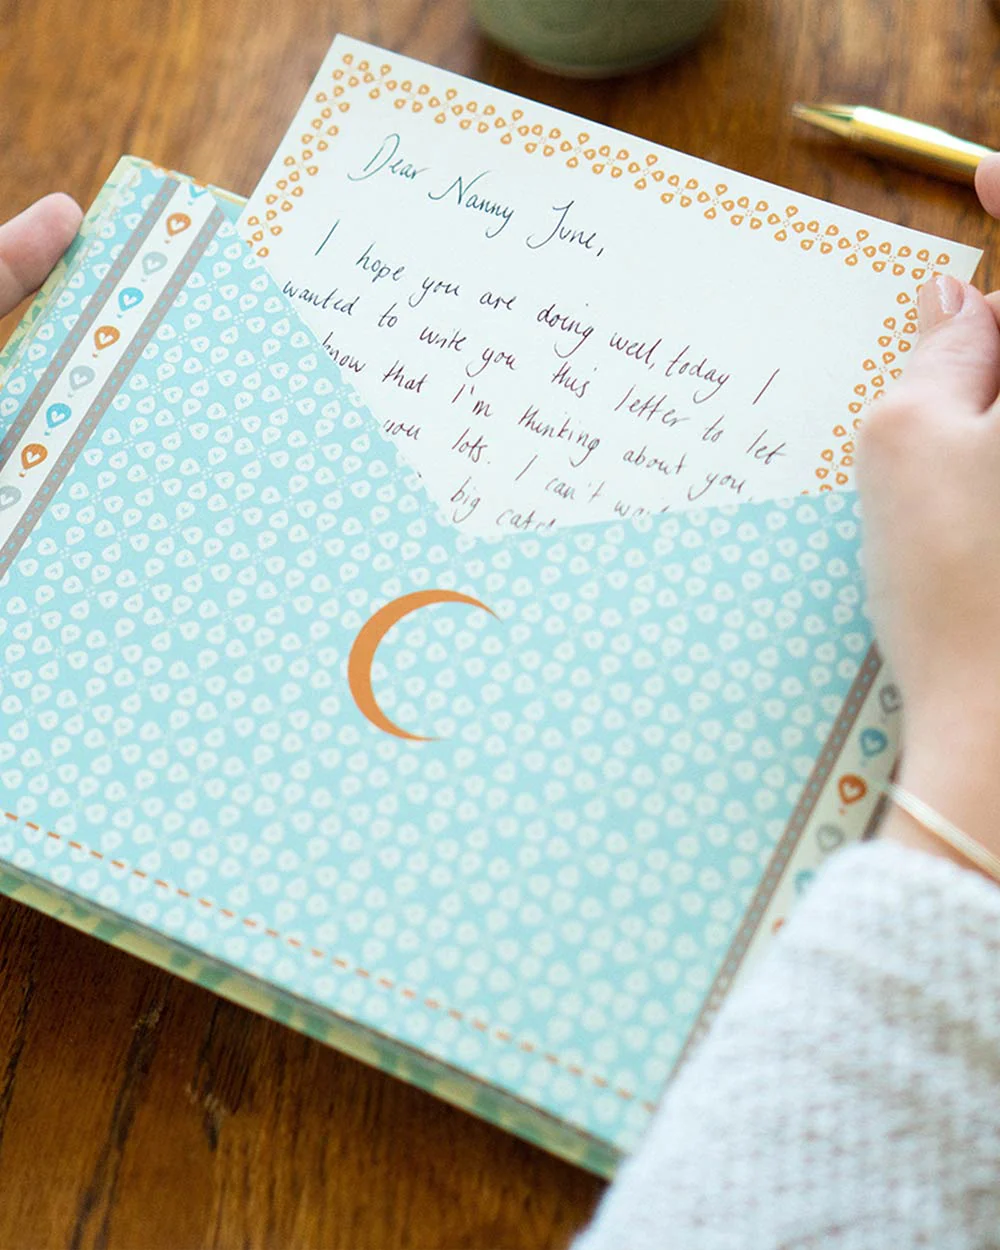 Dear Nanny June,
I hope you are doing well, today I
wanted to write you this letter to let
know that I'm thinking about you
you lots. I can't
big